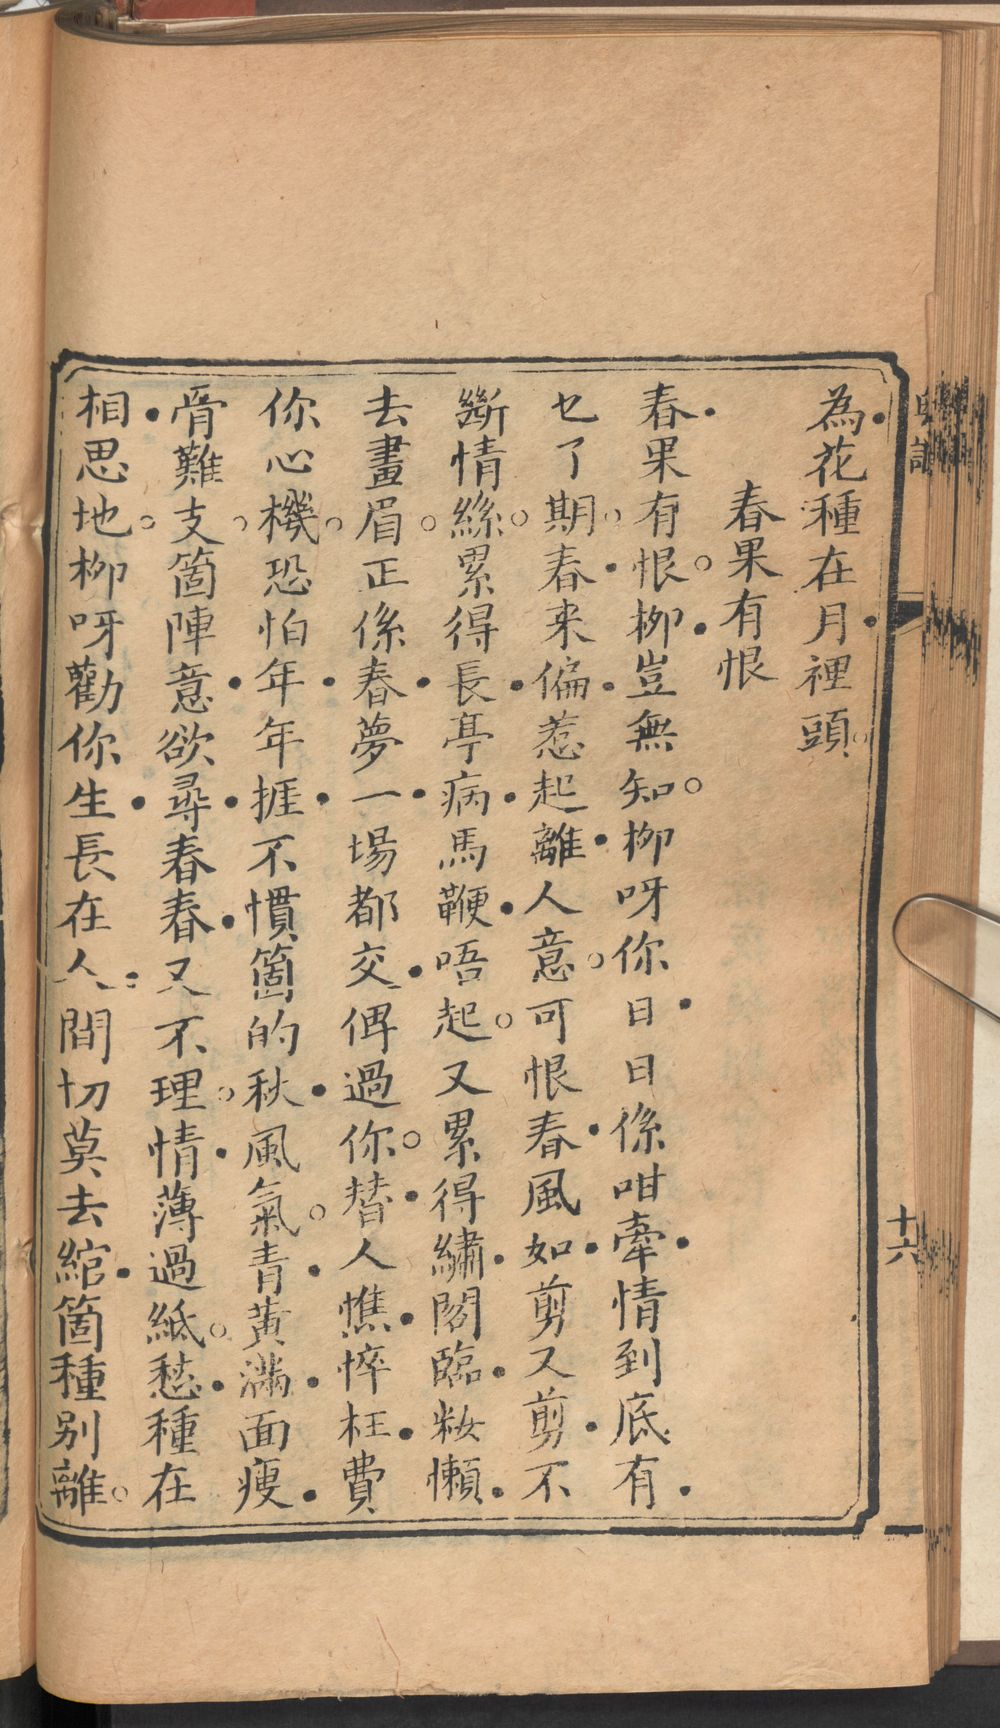 為花種在月裡頭
春果有恨
春果有恨柳豈無知柳呀你日日係咁牽情到底有
乜了期春來偏惹起離人意可恨春風如剪又剪不
斷情絲累得長亭病馬鞭唔起又累得繡閣臨妝懶
去畫眉正係春夢一場都交俾過你替人憔悴枉費
你心機恐怕年年捱不慣箇的秋風氣青黃滿面瘦
骨難支箇陣意欲尋春春又不理情薄過紙愁種在
相思地柳呀勸你生長在人間切莫去綰箇種別離
十六